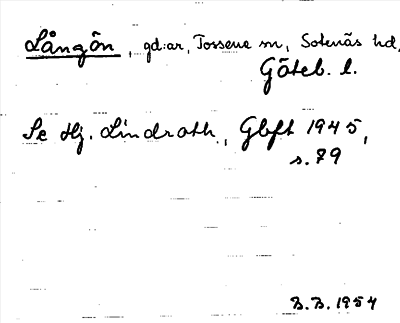 Långön, gd:ar, Tossene sn, Sotenäs hd,
Göteb. l.
Se Hj. Lindroth, Gbft 1945,
s. 79
B.B. 1954